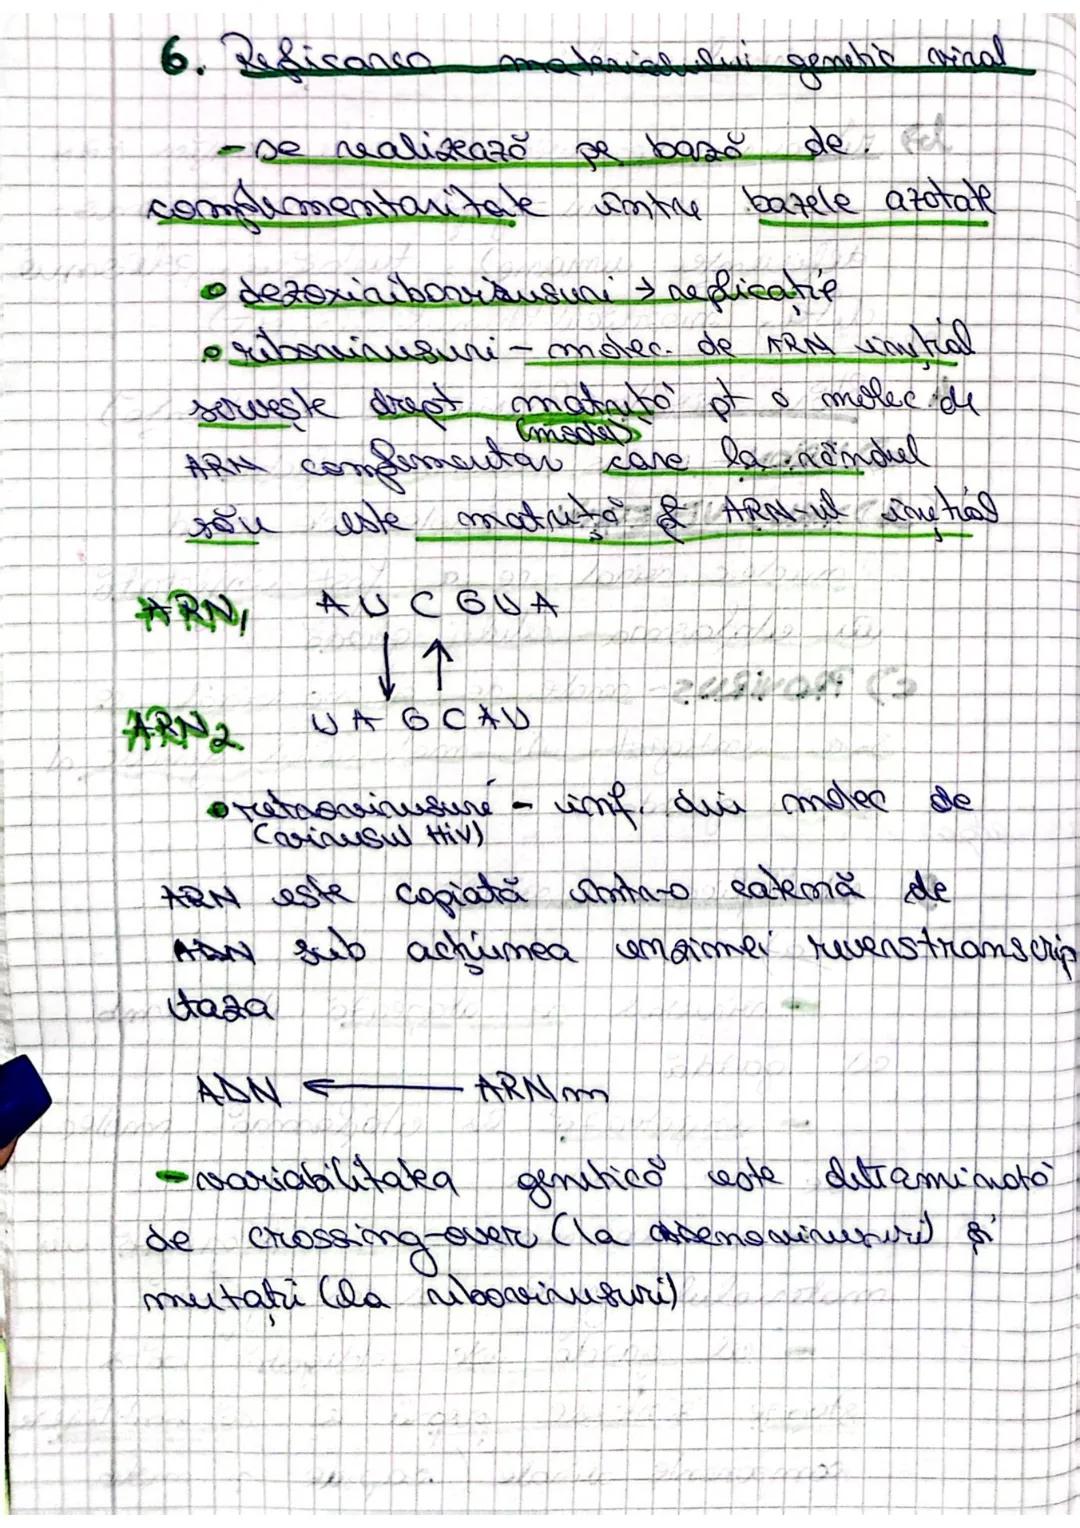 6. Reficarea materialului genetic viral
- se realizează pe bază de
complementaritate între bazele azotate
dezoxiribovirusuri → replicație
ribovirusuri - molec. de ARN inițial
servește drept matriță pt o molec. de
(model)
ARN complementar care la rândul
său este matriță pt ARN-ul inițial
ARN1 A U C G U A
ARN2 U A G C A U
retrovirusuri - inf. din molec de
(virusul HiV)
ARN este copiată într-o catenă de
ADN sub acțiunea enzimei reverstranscrip
taza
ADN ← ARNm
- variabilitatea genetică este determinată
de crossing-over (la adenovirusuri) și
mutații (la ribovirusuri)
c) PROVIRUS